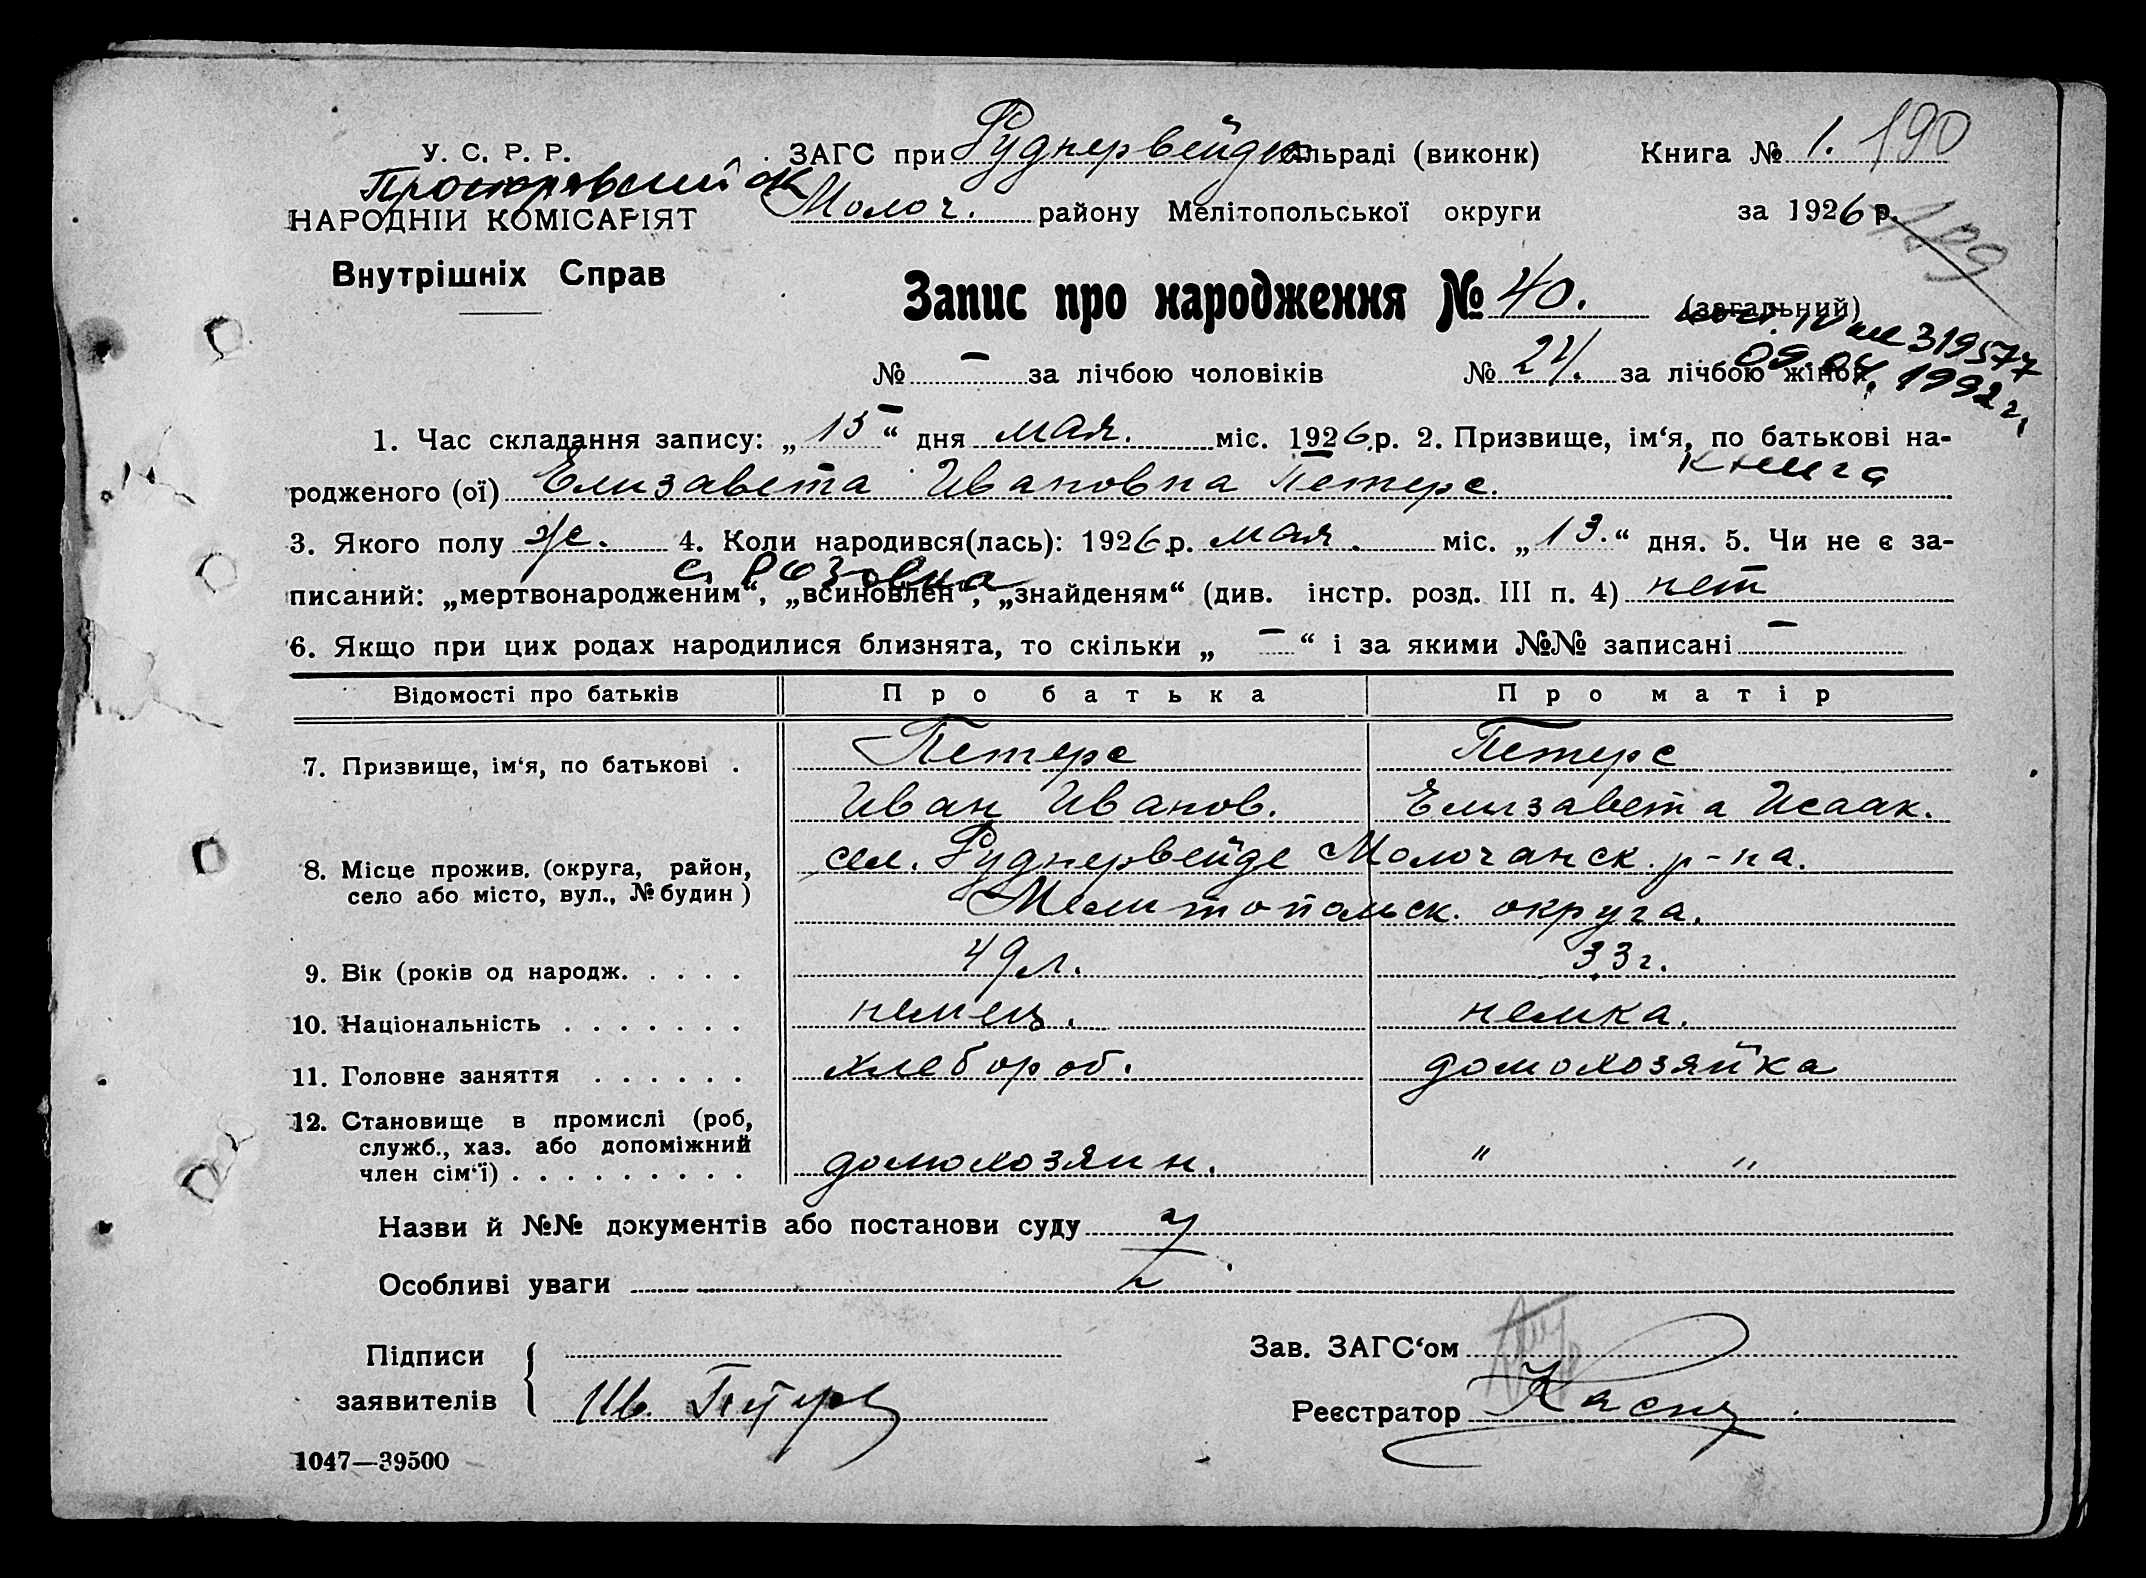 У. С. Р. Р.
НАРОДНІЙ КОМІСАРІЯТ
Внутрішніх Справ
ЗАГС при Руднервейде сільраді (виконк)
Молоч. району Мелітопольської округи
Книга № 1. 190
за 1926 р. 189
Запис про народження № 40. (загальний)
№ – за лічбою чоловіків № 24. за лічбою жінок
319577
09.04.1992 г.
1. Час складання запису: „ 15 “ дня мая. міс. 1926 р. 2. Призвище, ім‘я, по батькові на-
книга
родженого (ої) Елизавета Ивановна Петерс.
3. Якого полу ж. 4. Коли народився(лась): 1926 р. мая. міс. „ 13. “ дня. 5. Чи не є за-
писаний: „мертвонародженим“, „всиновлен“, „знайденям“ (див. інстр. розд. III п. 4) нет
6. Якщо при цих родах народилися близнята, то скільки „ – “ і за якими №№ записані –
Відомості про батьків Про батька Про матір
7. Призвище, ім‘я, по батькові . Петерс Петерс
Иван Иванов. Елизавета Исаак.
8. Місце прожив. (округа, район,
село або місто, вул., № будин )
сел. Руднервейде Молочанск. р-на.
Мелитопольск. округа.
9. Вік (років од народж. . . . . 49 л. 33 г.
10. Національність . . . . . . . немец. немка.
11. Головне заняття . . . . . . хлебороб. домохозяйка
12. Становище в промислі (роб,
служб., хаз. або допоміжний
член сім‘ї) . . . . . . . . . домохозяин. " "
Назви й №№ документів або постанови суду
Особливі уваги
Підписи
заявителів
Ив. Петерс
Зав. ЗАГС‘ом
Реєстратор
1047—39500